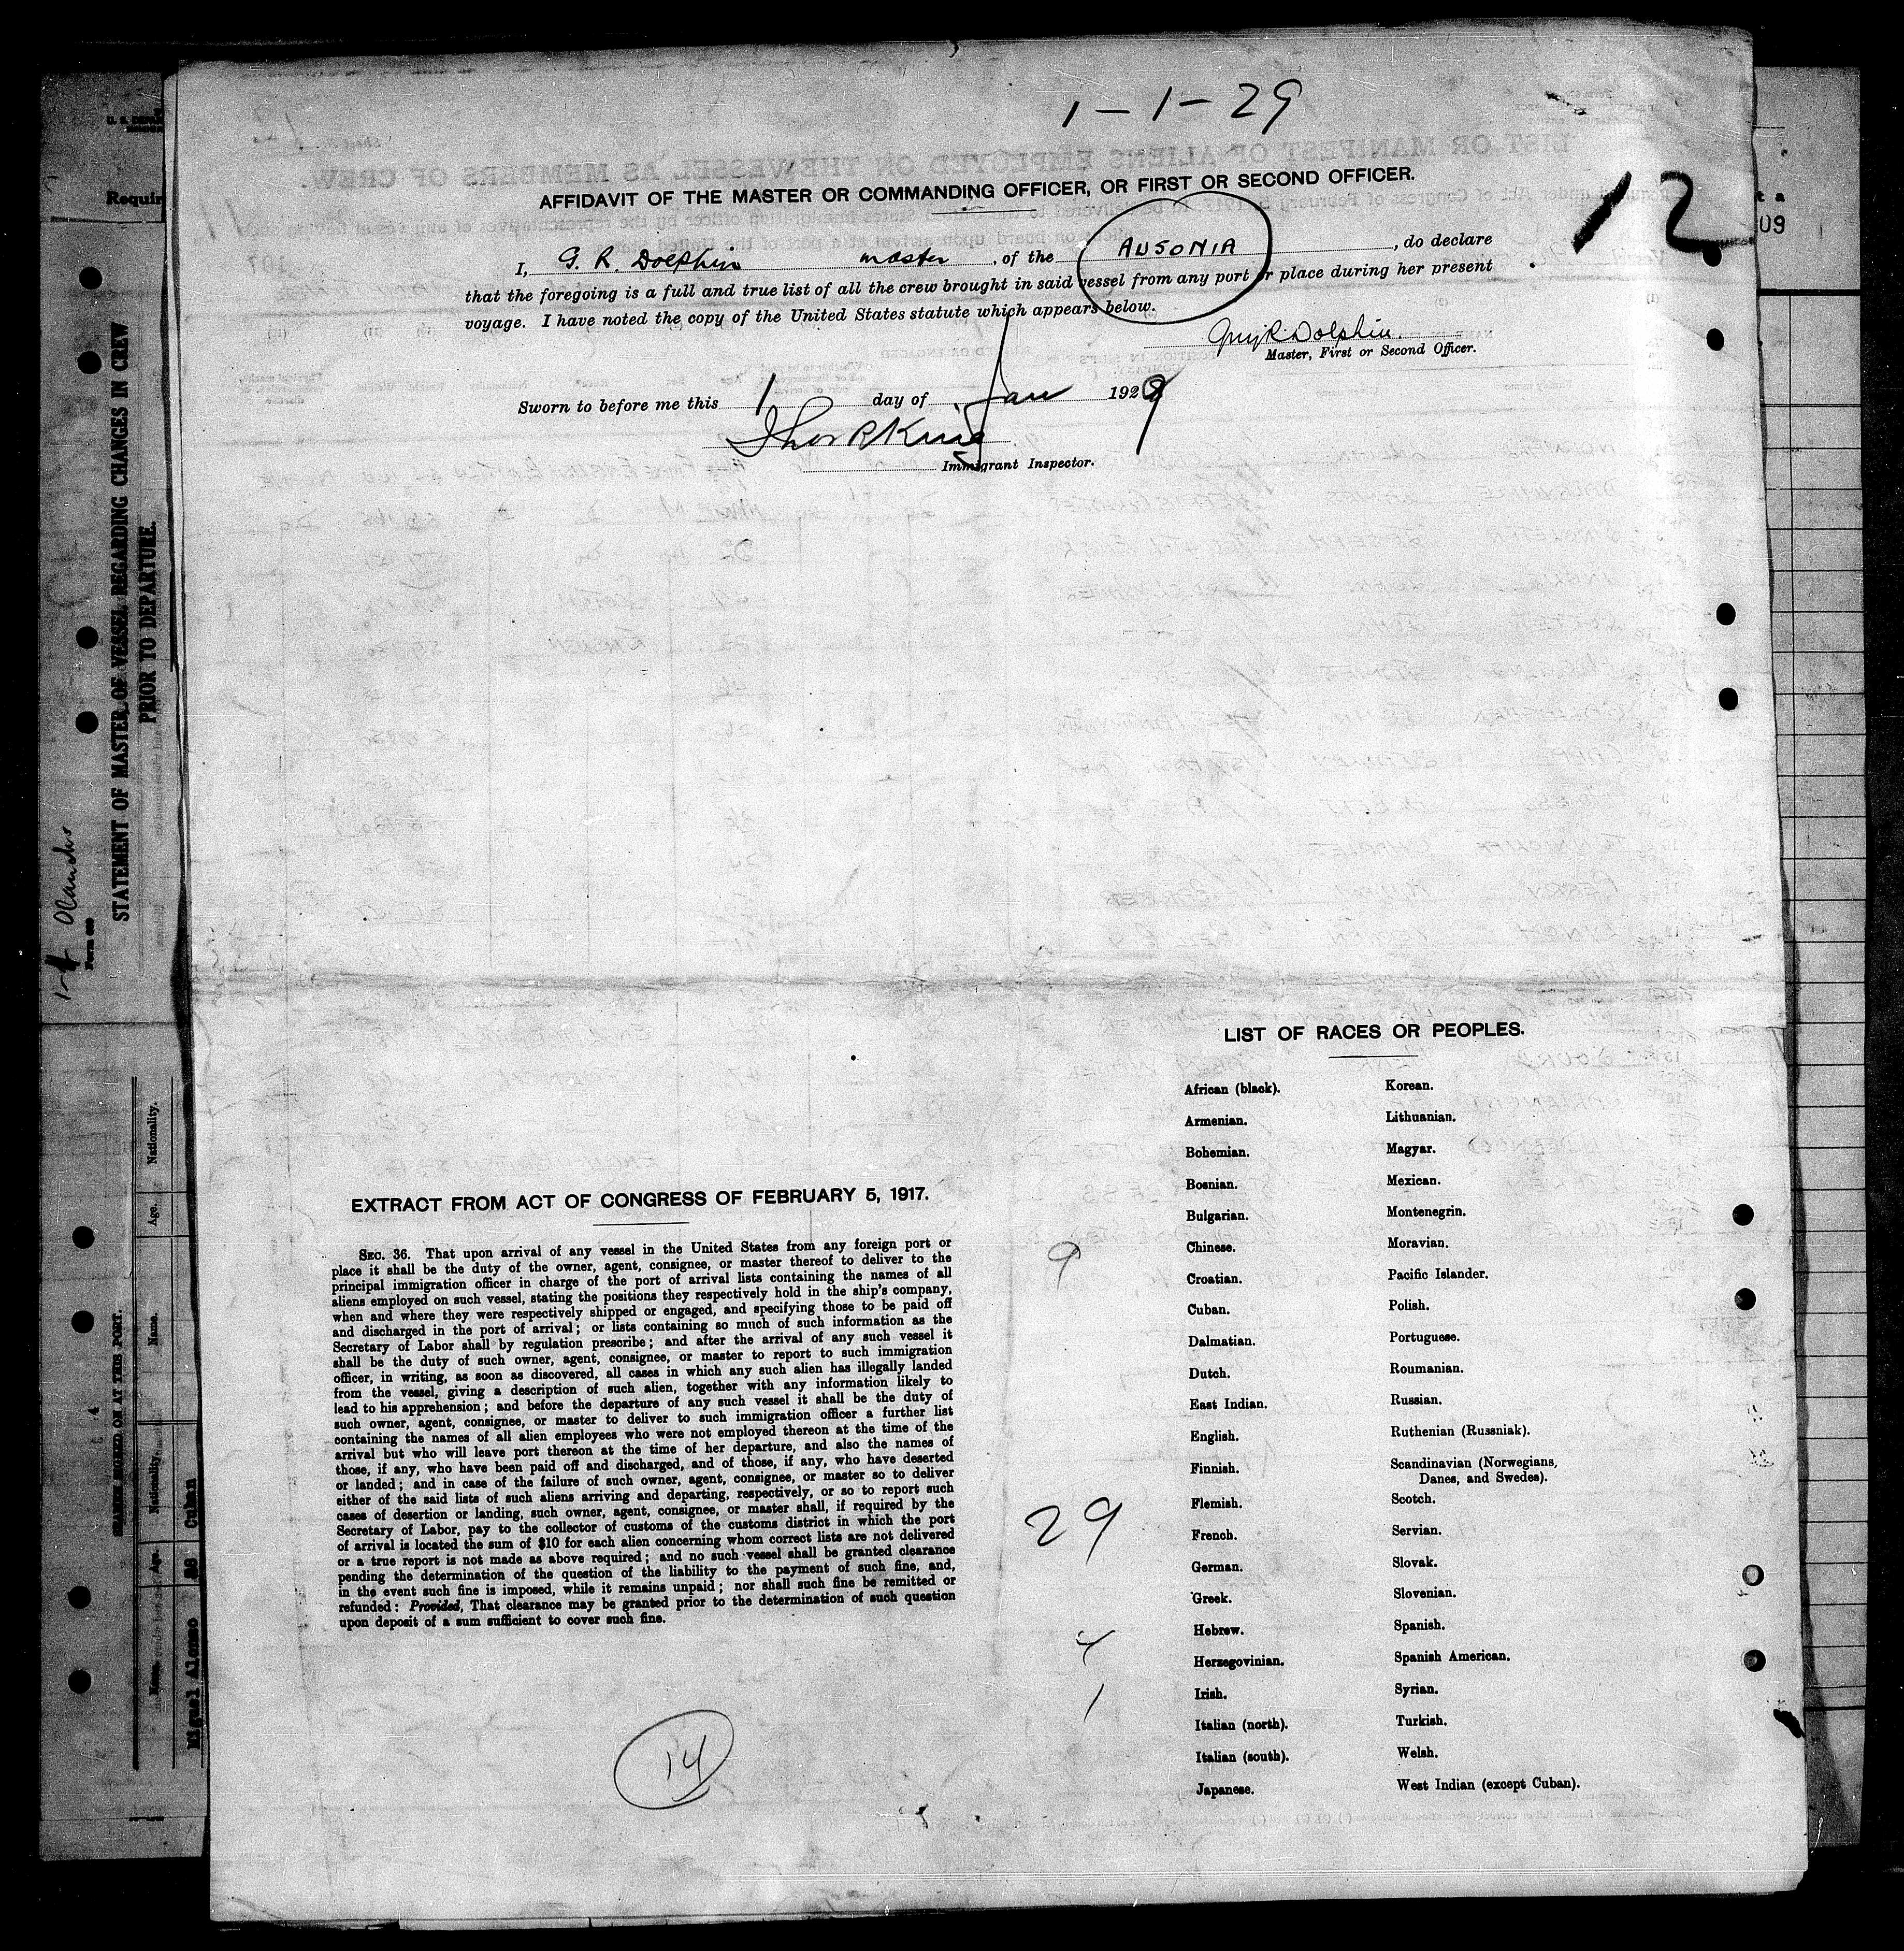 1-1-29
12
AFFIDAVIT OF THE MASTER OR COMMANDING OFFICER, OR FIRST OR SECOND OFFICER.
I, G. R. Dolphin master, of the AUSONIA, do declare
that the foregoing is a full and true list of all the crew brought in said vessel from any port or place during her present
voyage. I have noted the copy of the United States statute which appears below.
Guy R Dolphin.
Master, First or Second Officer.
Sworn to before me this 1 day of Jan 1929
Thos R King
Immigrant Inspector.
LIST OF RACES OR PEOPLES.
African (black). Korean.
Armenian. Lithuanian.
Bohemian. Magyar.
Bosnian. Mexican.
Bulgarian. Montenegrin.
Chinese. Moravian.
Croatian. Pacific Islander.
Cuban. Polish.
Dalmatian. Portuguese.
Dutch. Roumanian.
East Indian. Russian.
English. Ruthenian (Russniak).
Finnish. Scandinavian (Norwegians,
Danes, and Swedes).
Flemish. Scotch.
French. Servian.
German. Slovak.
Greek. Slovenian.
Hebrew. Spanish.
Herzegovinian. Spanish American.
Irish. Syrian.
Italian (north). Turkish.
Italian (south). Welsh.
Japanese. West Indian (except Cuban).
9
29
4
1
EXTRACT FROM ACT OF CONGRESS OF FEBRUARY 5, 1917.
SEC. 36. That upon arrival of any vessel in the United States from any foreign port or
place it shall be the duty of the owner, agent, consignee, or master thereof to deliver to the
principal immigration officer in charge of the port of arrival lists containing the names of all
aliens employed on such vessel, stating the positions they respectively hold in the ship's company,
when and where they were respectively shipped or engaged, and specifying those to be paid off
and discharged in the port of arrival; or lists containing so much of such information as the
Secretary of Labor shall by regulation prescribe; and after the arrival of any such vessel it
shall be the duty of such owner, agent, consignee, or master to report to such immigration
officer, in writing, as soon as discovered, all cases in which any such alien has illegally landed
from the vessel, giving a description of such alien, together with any information likely to
lead to his apprehension; and before the departure of any such vessel it shall be the duty of
such owner, agent, consignee, or master to deliver to such immigration officer a further list
containing the names of all alien employees who were not employed thereon at the time of the
arrival but who will leave port thereon at the time of her departure, and also the names of
those, if any, who have been paid off and discharged, and of those, if any, who have deserted
or landed; and in case of the failure of such owner, agent, consignee, or master so to deliver
either of the said lists of such aliens arriving and departing, respectively, or so to report such
cases of desertion or landing, such owner, agent, consignee, or master shall, if required by the
Secretary of Labor, pay to the collector of customs of the customs district in which the port
of arrival is located the sum of $10 for each alien concerning whom correct lists are not delivered
or a true report is not made as above required; and no such vessel shall be granted clearance
pending the determination of the question of the liability to the payment of such fine, and,
in the event such fine is imposed, while it remains unpaid; nor shall such fine be remitted or
refunded: Provided, That clearance may be granted prior to the determination of such question
upon deposit of a sum sufficient to cover such fine.
14
Requir
STATEMENT OF MASTER OF VESSEL REGARDING CHANGES IN CREW
PRIOR TO DEPARTURE.
SEAMEN SIGNED ON AT THIS PORT.
Name. Age. Nationality. Name. Age. Nationality.
Miguel Alonso Cuban
t a
09